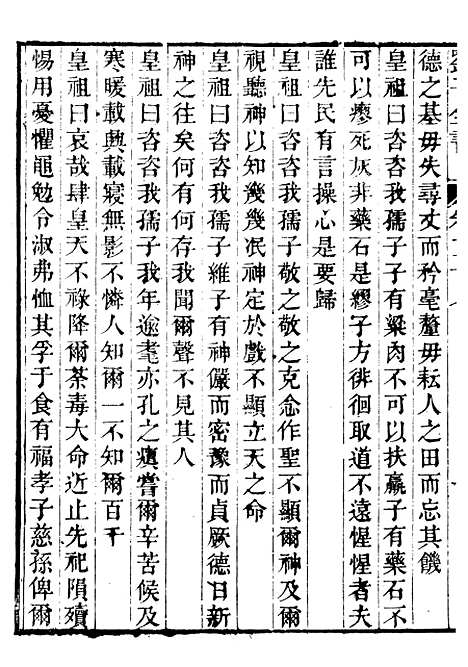 德之基毋失尋丈而矜毫釐毋耘人之田而忘其饑
皇祖曰咨咨我孺子子有粱肉不可以扶羸子有藥石不
可以瘳死灰非藥石是繆子方徘徊取道不遠惺惺者夫
誰先民有言操心是要歸
皇祖曰咨咨我孺子敬之敬之克念作聖不顯爾神及爾
視聽神以知幾幾泯神定於戲不顯立天之命
皇祖曰咨咨我孺子維子有神儼而密豫而貞厥德日新
神之往矣何有何存我聞爾聲不見其人
皇祖曰咨咨我孺子我年逾耄亦孔之瘨嘗爾辛苦候及
寒暖載興載寢無影不憐人知爾一不知爾百千
皇祖曰哀哉肆皇天不祿降爾荼毒大命近止先祀隕殰
惕用憂懼黽勉令淑弗恤其孚于食有福孝子慈孫俾爾